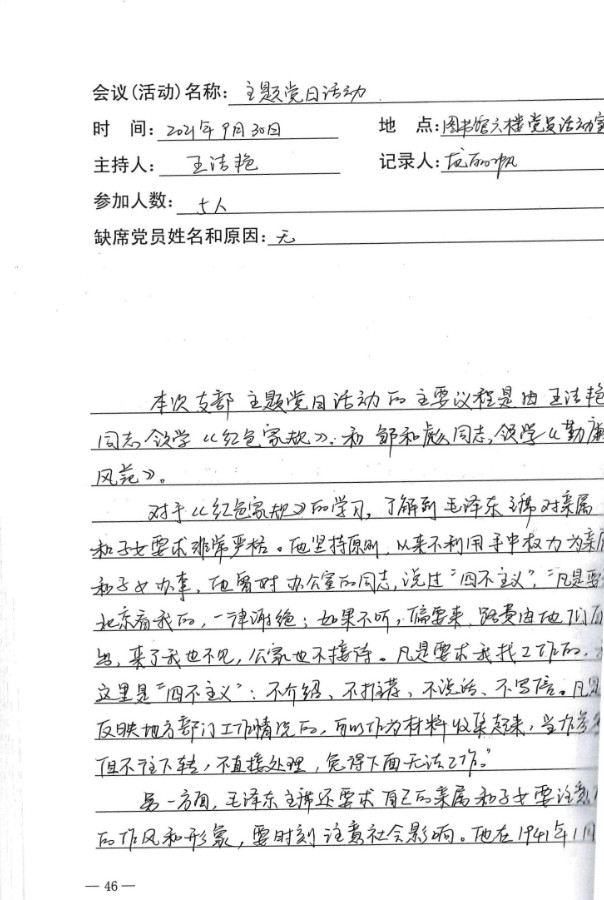 会议(活动)名称: 主题党日活动
时 间: 2021年9月30日 地 点: 图书馆六楼党员活动室
主持人: 王洁艳 记录人:
参加人数: 5人
缺席党员姓名和原因: 无
本次支部主题党日活动的主要议程是由王洁艳
同志领学《红色家规》。和邹和彪同志领学《勤廉
风范》。
对于《红色家规》的学习,了解到毛泽东主席对亲属
和子女要求非常严格。他坚持原则,从来不利用手中权力为亲
和子女办事,他曾对办公室的同志说过"四不主义","凡是要
北京看我的,一律谢绝;如果不听,偏要来,路费由他们
出,来了我也不见,公家也不接待。凡是要求我找工作的,
这里是"四不主义":不介绍、不推荐、不说话、不写信。凡是
反映地方部门工作情况的,可以作为材料收集起来,当作参
但不往下转,不直接处理,免得下面无法工作。"
另一方面,毛泽东主席还要求自己的亲属和子女要注意
的作风和形象,要时刻注意社会影响。他在1941年1月
— 46 —